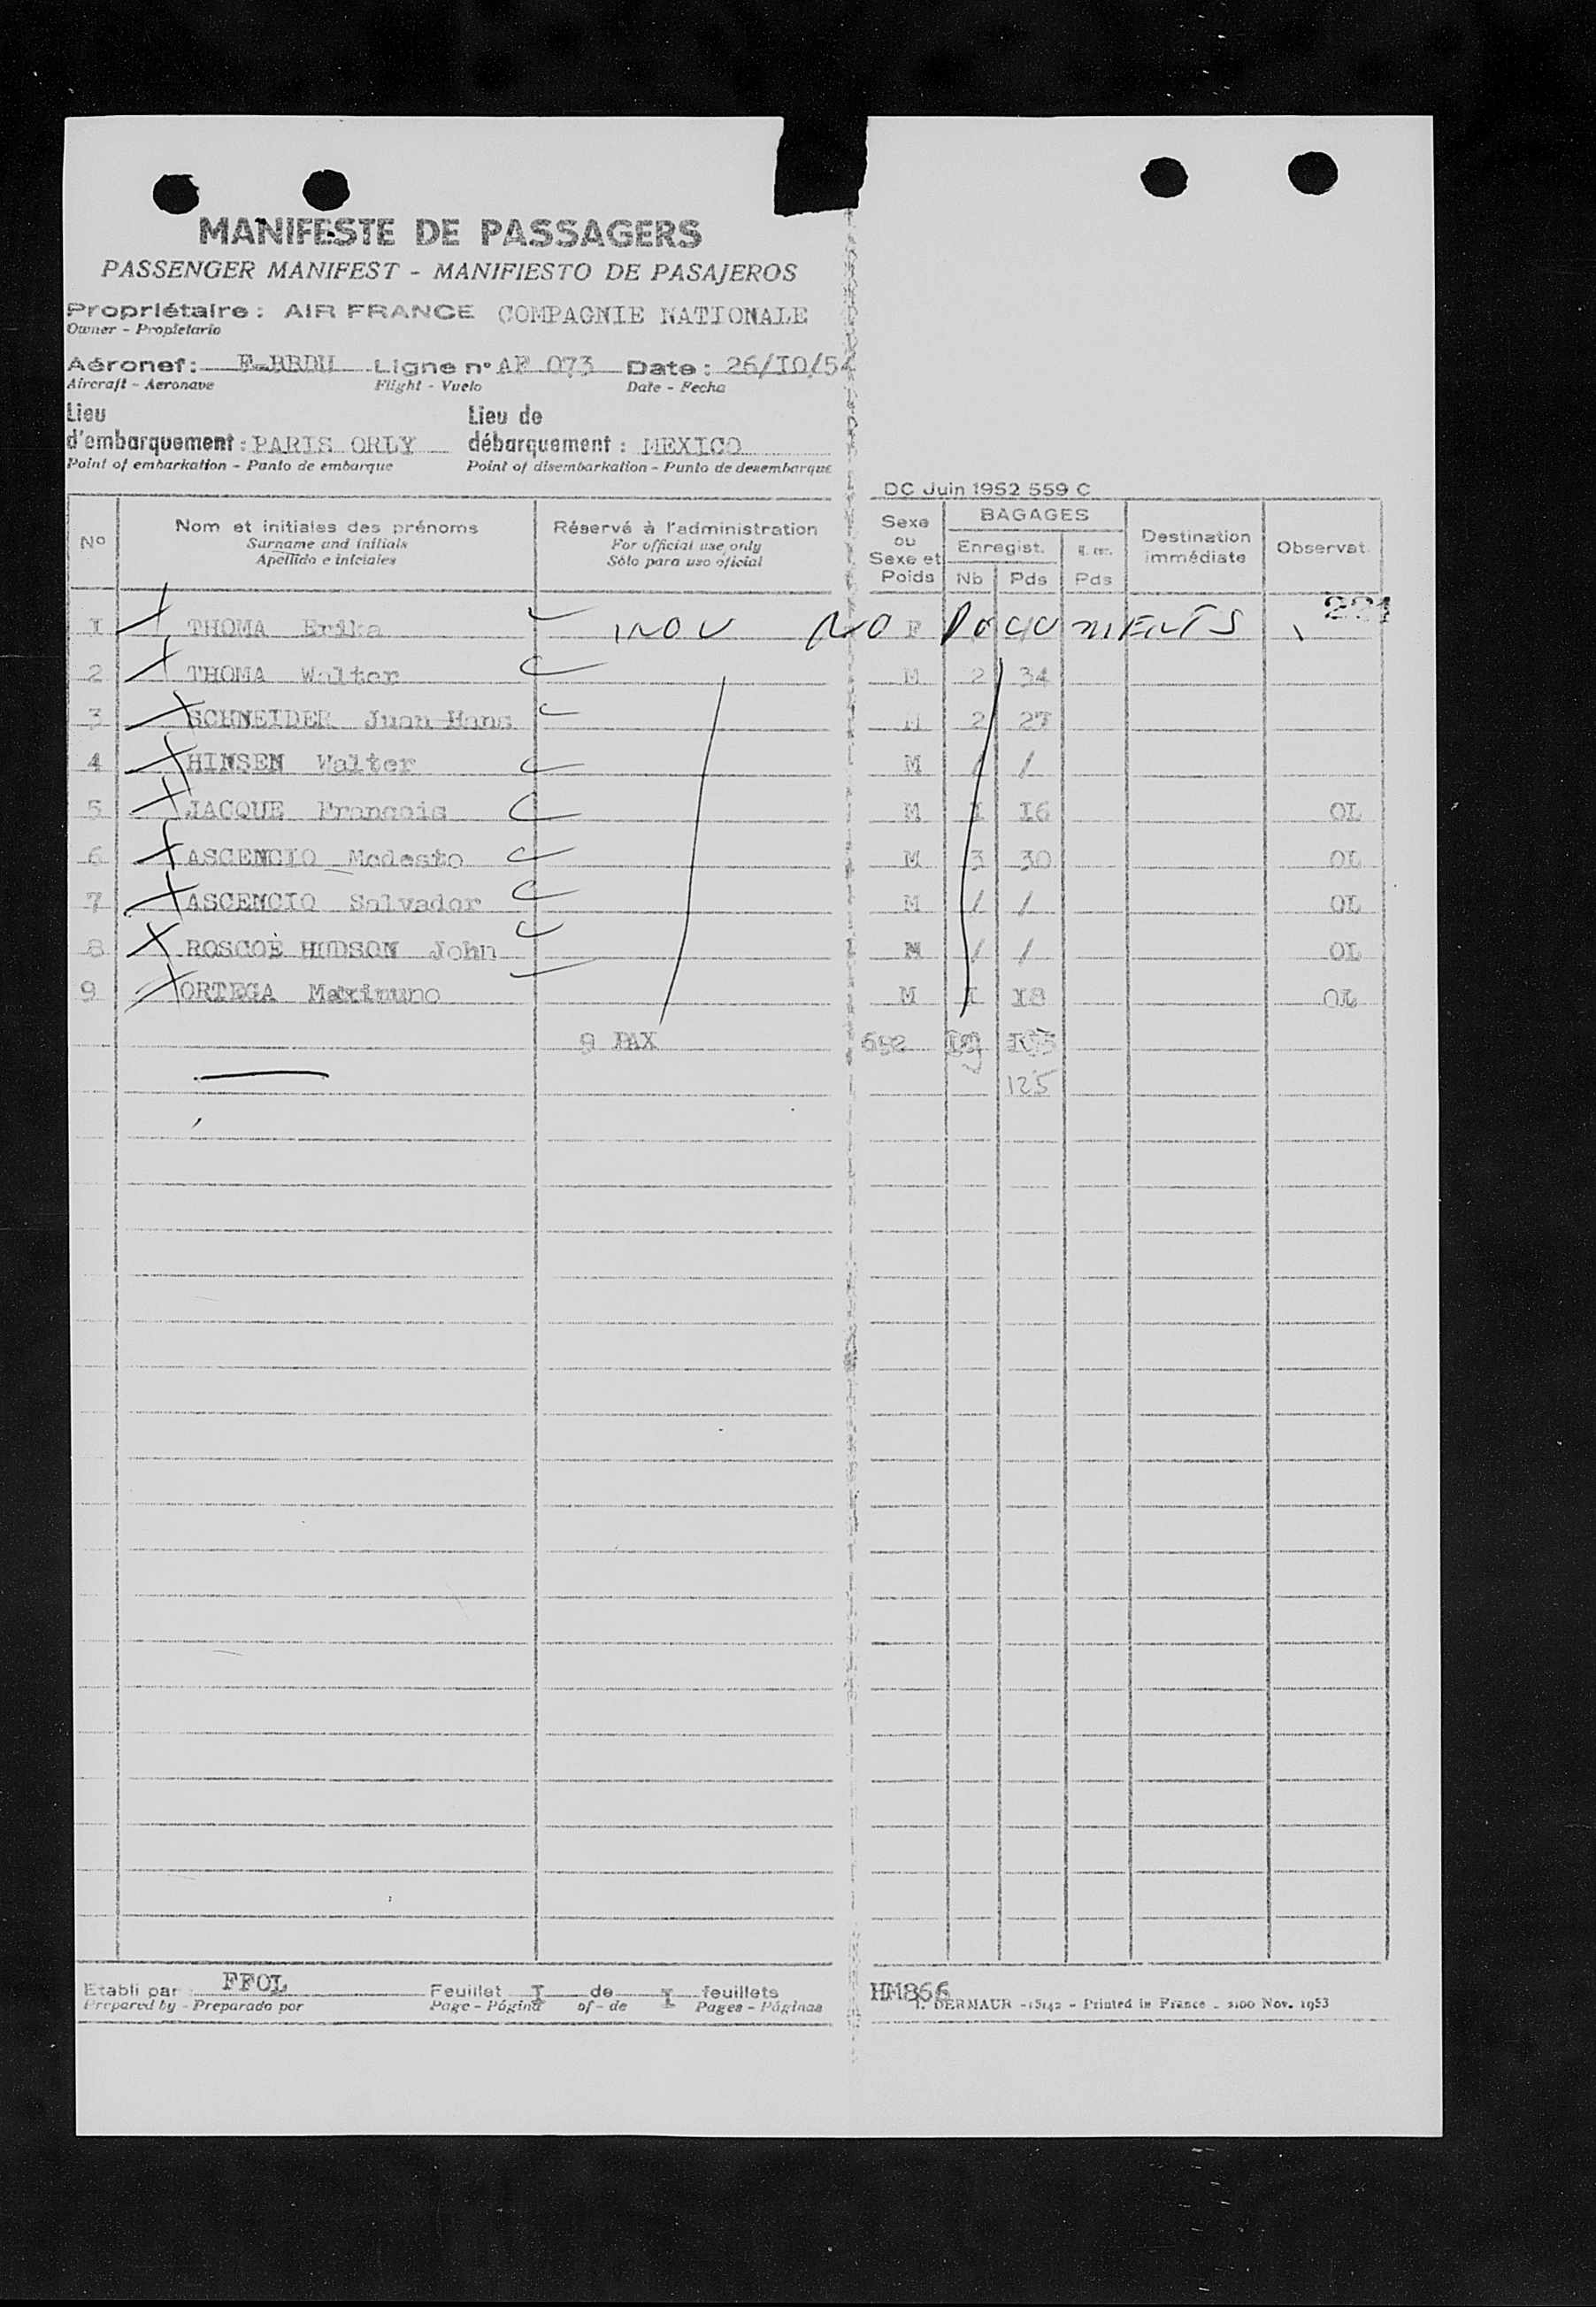 MANIFESTE DE PASSAGERS
PASSENGER MANIFEST - MANIFIESTO DE PASAJEROS
Propriétaire : AIR FRANCE COMPAGNIE NATIONALE
Owner - Propietario
Aéronef : Ligne n° AF 073 Date : 26/IO/54
Aircraft - Aeronave Flight - Vuelo Date - Fecha
Lieu Lieu de
d'embarquement : PARIS ORLY débarquement : MEXICO
Point of embarkation - Punto de embarque Point of disembarkation - Punto de desembarque
DC Juin 1952 559 C
N° Nom et initiales des prénoms Réservé à l'administration Sexe BAGAGES Destination Observat.
Surname and initials For official use only ou Enregist. immédiate
Apellido e iniciales Sólo para uso oficial Sexe et
Poids Nb Pds Pds
I THOMA Erika INOU NO F DOCUMENTS 221
2 THOMA Walter M 2 34
3 SCHNEIDER Juan Hans M 2 27
4 HINSEN Walter M / /
5 JACQUE Francois M I I6 OL
6 ASCENCIO Modesto M 3 30 OL
7 ASCENCIO Salvador M / / OL
8 ROSCOE HUDSON John M / / OL
9 ORTEGA Maximuno M I I8 OL
9 PAX 692
125
Etabli par : FFOL Feuillet I de I feuillets HM866
Prepared by - Preparado por Page - Página of - de Pages - Páginas I. DERMAUR - 15142 - Printed in France - 3100 Nov. 1953